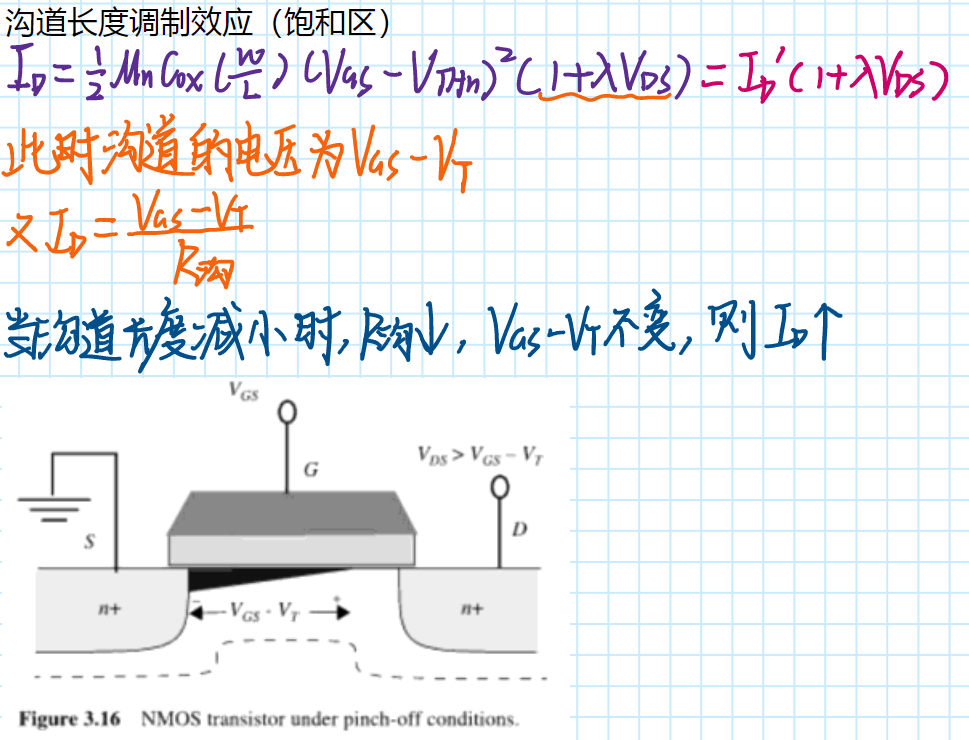 沟道长度调制效应（饱和区）
I_D = 1/2 Mn Cox (W/L) (VGS - VTHn)² (1+λVDS) = I_D' (1+λVDS)
此时沟道的电压为VGS-VT
又 I_D = (VGS-VT)/R沟
当沟道长度减小时, R沟↓, VGS-VT不变, 则 I_D↑
VGS
G
VDS > VGS - VT
S
D
n+
- VGS - VT +
n+
Figure 3.16 NMOS transistor under pinch-off conditions.